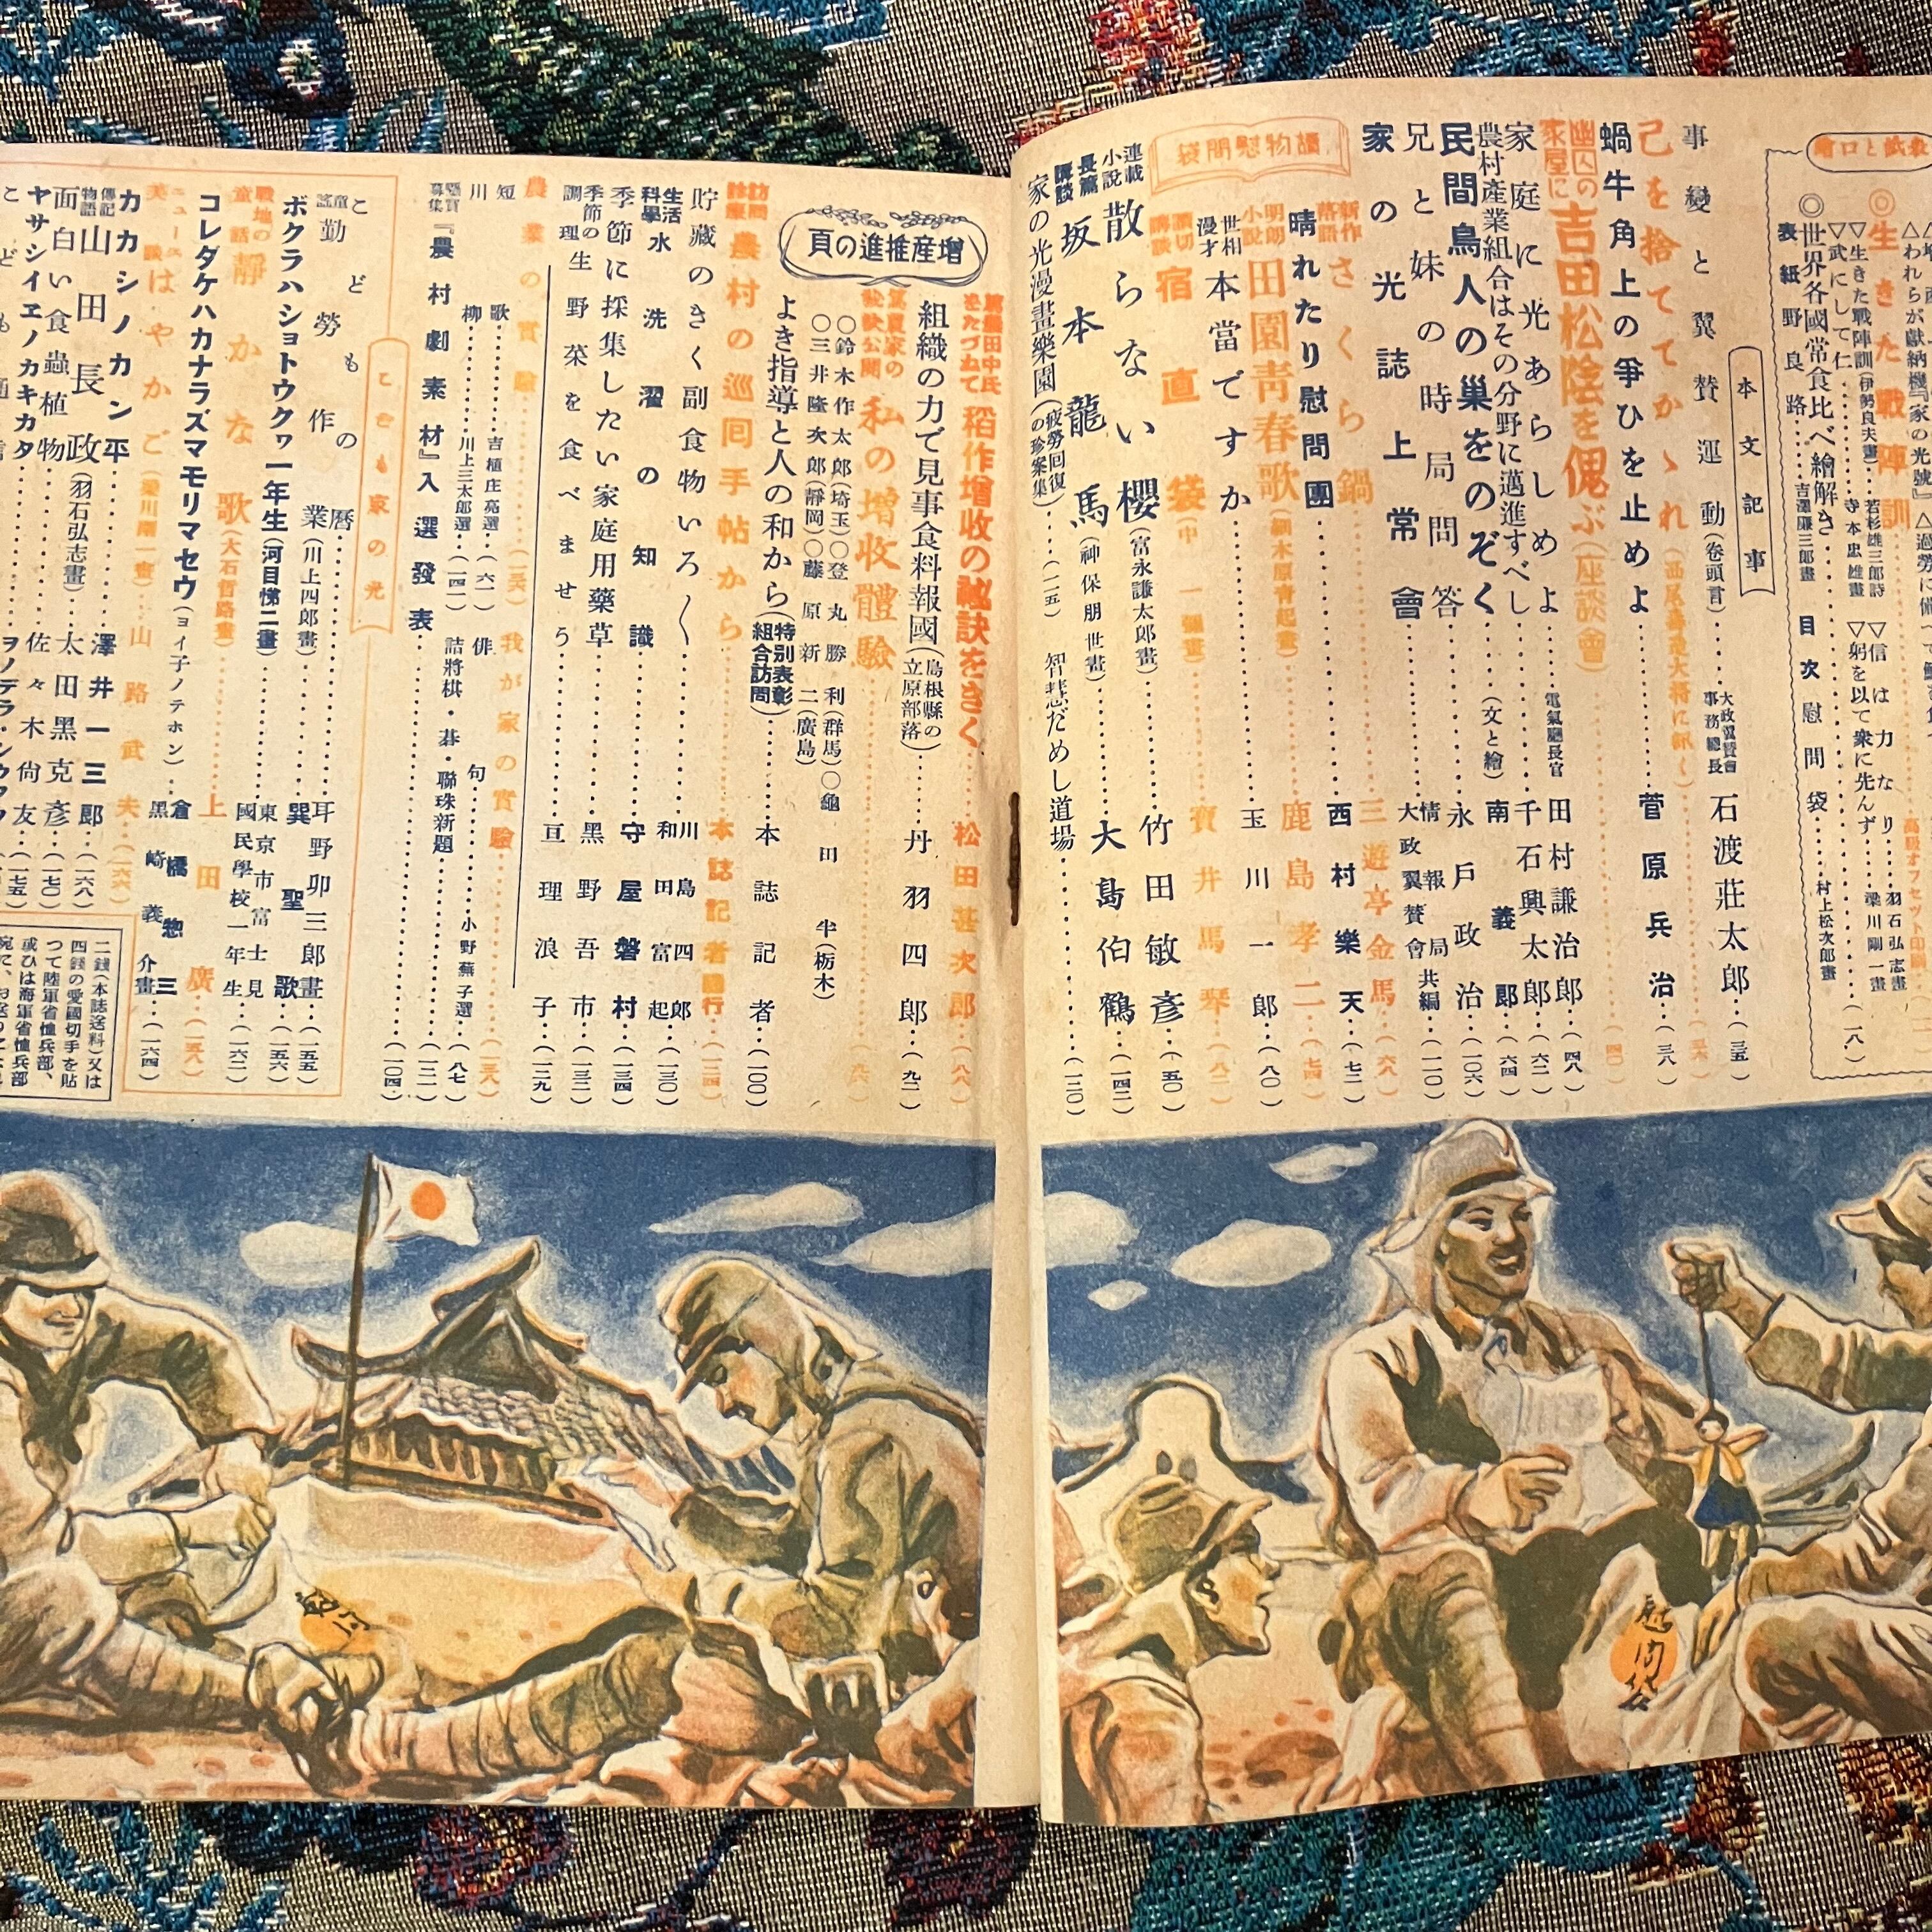 ◎生きた戰陣訓
高級オフセット印刷
▽生きた戰陣訓(伊勢良夫畫)
若杉雄三郎詩
▽信は力なり
羽石弘志畫
▽武にして仁
寺本忠雄畫
▽躬を以て衆に先んず
梁川剛一畫
◎世界各國常食比べ繪解き
村上松次郎畫(一八)
表紙 野良路 吉澤廉三郎畫
目次 慰問袋
本文記事
事變と翼贊運動(卷頭言)
大政翼贊會事務總長 石渡莊太郎(三五)
己を捨ててかゝれ(西尾壽造大將に訊く)(三六)
蝸牛角上の爭ひを止めよ 菅原兵治(三八)
幽囚の家屋に吉田松陰を偲ぶ(座談會)(四〇)
家庭に光あらしめよ 電氣廳長官 田村謙治郎(四八)
農村產業組合はその分野に邁進すべし 千石興太郎(六二)
民間鳥人の巢をのぞく(文と繪) 南義郎(六四)
兄と妹の時局問答 永戶政治(一〇六)
家の光誌上常會 情報局 大政翼贊會 共編(一一〇)
讀物慰問袋
新作落語 さくら鍋 三遊亭金馬(六八)
晴れたり慰問團 西村樂天(七二)
明朗小說 田園靑春歌(細木原靑起畫) 鹿島孝二(七四)
世相漫才 本當ですか 玉川一郎(八〇)
讀切講談 宿直袋(中一彌畫) 寶井馬琴(八二)
連載小說 散らない櫻(富永謙太郎畫) 竹田敏彥(五〇)
長篇講談 坂本龍馬(神保朋世畫) 大島伯鶴(一四二)
家の光漫畫樂園(疲勞回復の珍案集)(一一五)
智慧だめし道場(一二〇)
增產推進の頁
篤農田中氏をたづねて 稻作增收の祕訣をきく 松田甚次郎(八八)
組織の力で見事食料報國(島根縣の立原部落) 丹羽四郎(九二)
篤農家の祕訣公開 私の增收體驗(九六)
〇鈴木作太郎(埼玉)〇登丸勝利(群馬)〇龜田半(栃木)
〇三井隆次郎(靜岡)〇藤原新二(廣島)
よき指導と人の和から(特別表彰組合訪問) 本誌記者(一〇〇)
訪問診療 農村の巡囘手帖から 本誌記者隨行(一二四)
貯藏のきく副食物いろ〱 川島四郎
生活科學 水洗濯の知識 和田富起(一三〇)
季節に採集したい家庭用藥草 守屋磐村(一三四)
季節の調理 生野菜を食べませう 黑野吾市(一三二)
亘理浪子(一三九)
農業の實驗(一三六)
我が家の實驗(一三八)
短歌 吉植庄亮選(六一)
俳句 小野蕪子選(八七)
川柳 川上三太郎選(一四一)
詰將棋・碁・聯珠新題(一三一)
懸賞募集『農村劇素材』入選發表(一〇四)
こども家の光
こどもの曆
童謠 勤勞作業(川上四郎畫) 耳野卯三郎畫(一五五)
ボクラハショトウクヮ一年生(河目悌二畫) 巽聖歌(一五六)
東京市富士見國民學校一年生(一六二)
戰地の童話 靜かな歌(大石哲路畫) 上田廣(一五八)
コレダケハカナラズマモリマセウ(ヨイ子ノテホン) 倉橋惣三
黑崎義介畫(一六四)
ニュース美談 はやかご(梁川剛一畫) 山路武夫(一六六)
カカシノカン平 澤井一三郎(一六八)
傳記物語 山田長政(羽石弘志畫) 太田黑克彥
面白い食蟲植物 佐々木尙友(一七〇)
ヤサシイヱノカキカタ(一七五)
二錢(本誌送料)又は
四錢の愛國切手を貼
つて陸軍省恤兵部、
或ひは海軍省恤兵部
慰問
慰問袋